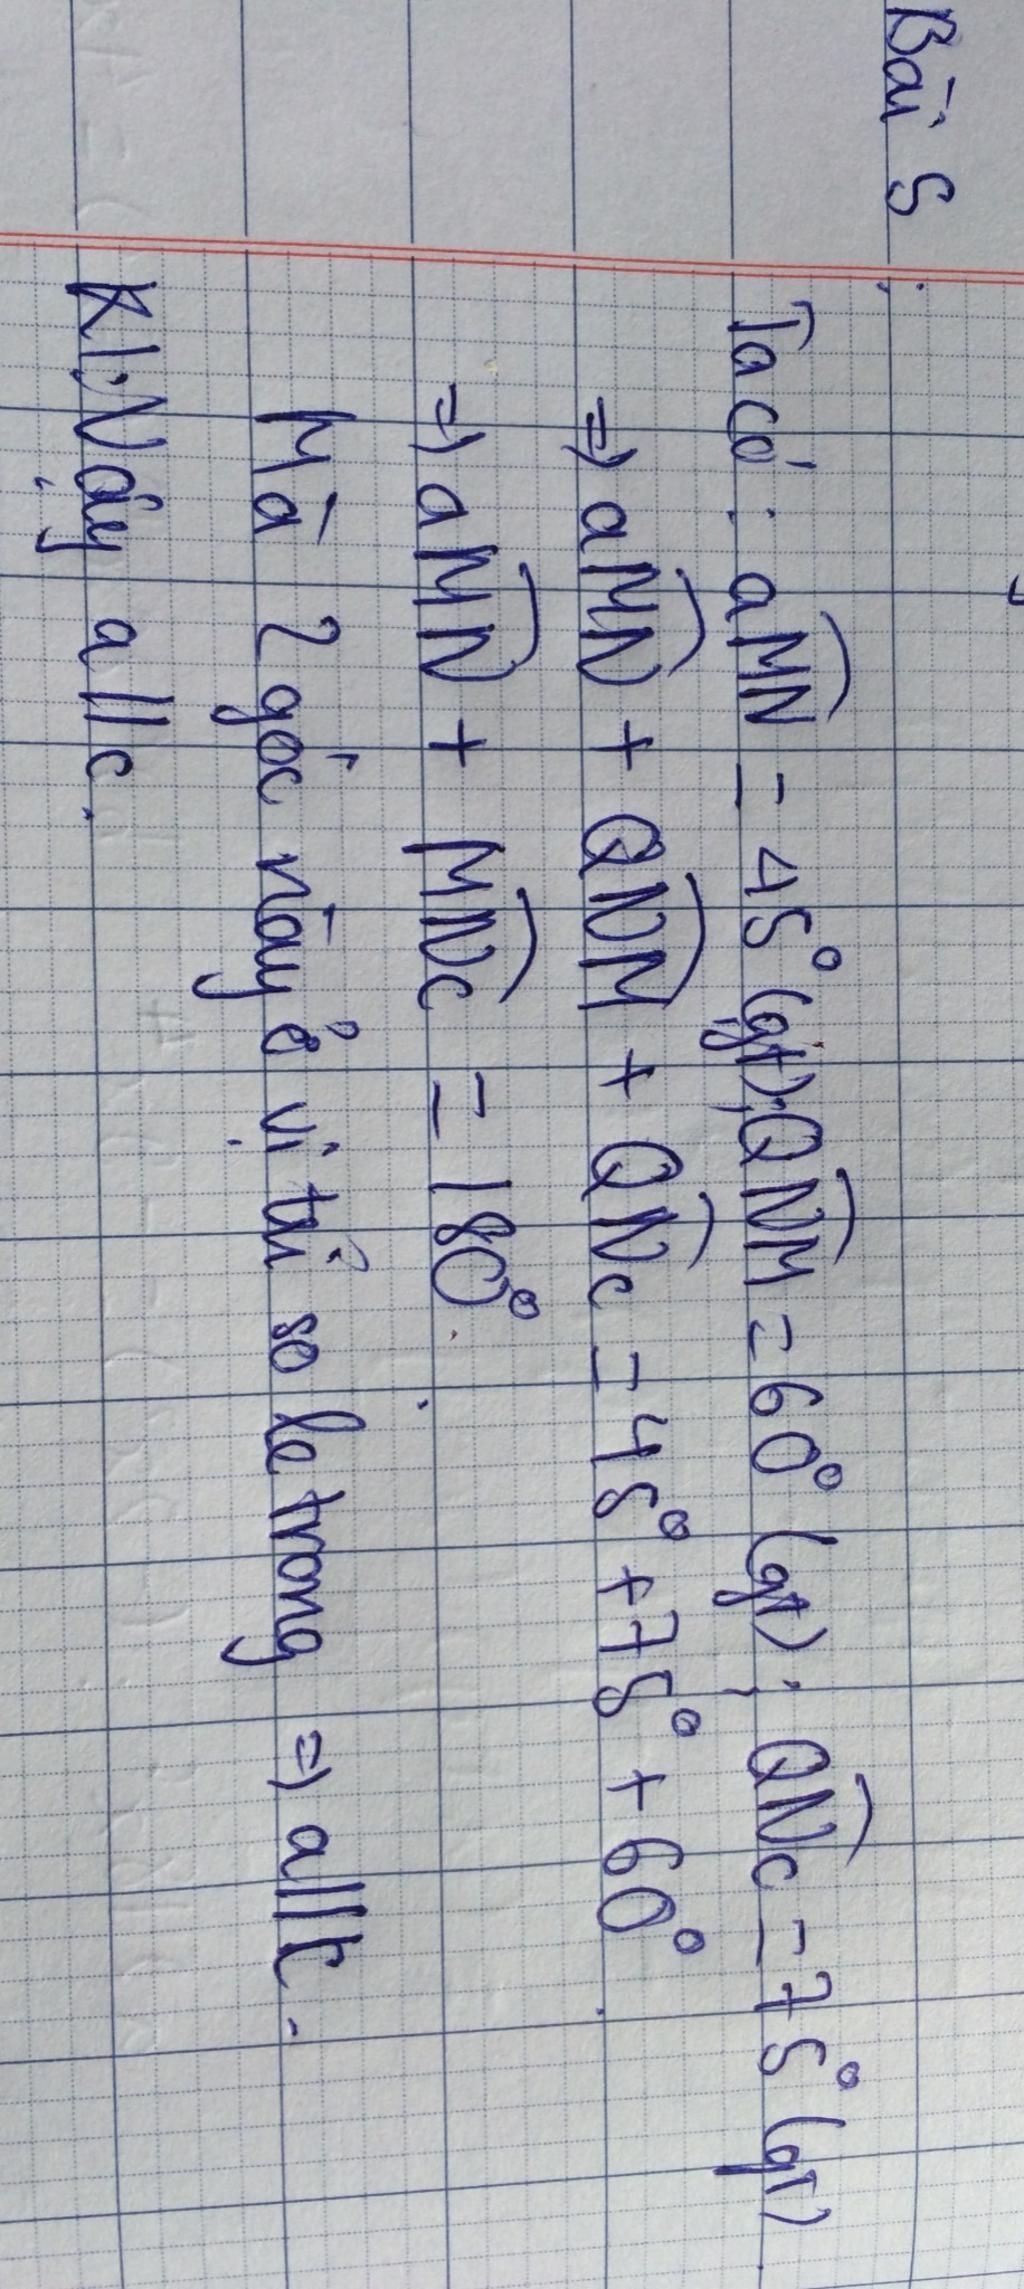 Bài 5
Ta có : aMN = 45° (gt); QNM = 60° (gt); QNc = 75° (gt)
=> aMN + QNM + QNc = 45° + 75° + 60°
=> aMN + MNc = 180°
Mà 2 góc này ở vị trí so le trong => a//c.
Kl: Vậy a//c.